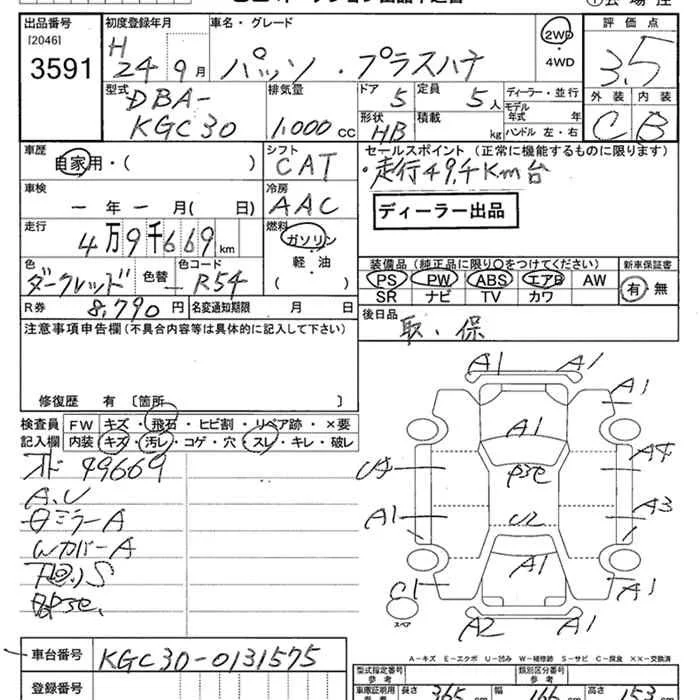 出品番号 初度登録年月 車名・グレード 評価点
[2046] H 2WD 3.5
3591 24 9月 パッソ・プラスハナ ・4WD
型式 排気量 ドア 定員 ディーラー・並行 外装 内装
DBA- 5 5人 モデル年式 年 C B
KGC30 1,000cc 形状 HB 積載 kg ハンドル 左・右
車歴 シフト セールスポイント (正常に機能するものに限ります)
自家用・( ) CAT ・走行49,千Km台
車検 冷房
ー年ー月( 日) AAC ディーラー出品
走行 燃料
4万9千669km ガソリン
軽・油
( )
装備品(純正品に限り○をつけてください) 新車保証書
色 色替 色コード PS PW ABS エアB AW 有 無
ダークレッド ー R54 SR ナビ TV カワ
R券 8,790円 名変通知期限 月 日 後日品
注意事項申告欄(不具合内容等は具体的に記入して下さい) 取、保
修復歴 有 〔箇所 〕
検査員 FW キズ・飛石・ヒビ割・リペア跡・×要
記入欄 内装 キズ・汚レ・コゲ・穴・スレ・キレ・破レ
49669
A.U
ミラーA
WカバーA
A1 A1
A1
A1
U4 P3e A4
A1 U2 A3
C1 A1 A1
スペア
A2 A1
A-キズ E-エクボ U-凹み W-補修跡 S-サビ C-腐食 ××-交換済
車台番号 KGC30-0131575
登録番号
型式指定番号 参考 類別区分番号 参考
車庫証明用 参考 長さ 365cm 幅 166cm 高さ 153cm